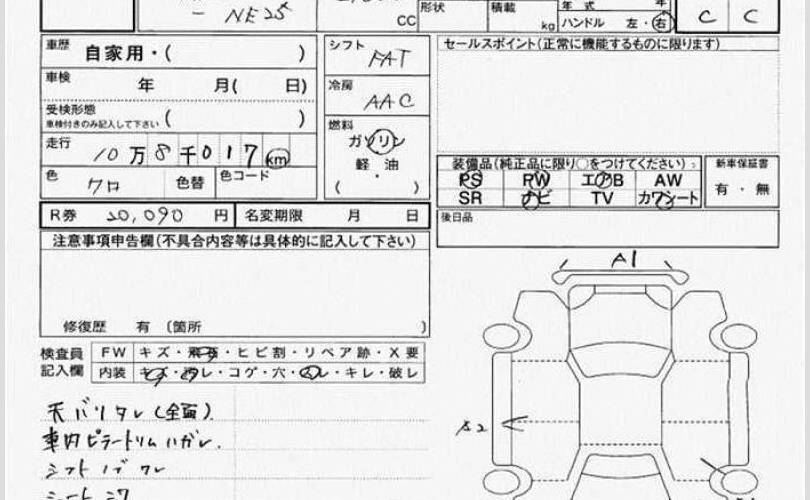 - NE25
CC
形状
積載
kg
年式 年
ハンドル 左・右
C C
車歴 自家用・( )
車検 年 月( 日)
受検形態
車検付きのみ記入して下さい ( )
走行 10万8千017km
色 クロ 色替 色コード
シフト FAT
冷房 AAC
燃料
ガソリン
・
軽油
( )
R券 20,090円 名変期限 月 日
注意事項申告欄(不具合内容等は具体的に記入して下さい)
修復歴 有 〔箇所 〕
セールスポイント(正常に機能するものに限ります)
装備品(純正品に限り○をつけてください)
PS PW エアB AW
SR ナビ TV カワシート
新車保証書
有・無
後日品
検査員
記入欄
FW キズ・飛石・ヒビ割・リペア跡・X要
内装 キズ・汚レ・コゲ・穴・スレ・キレ・破レ
天バリタレ(全面)
車内ピラートリムハガレ.
シフトノブワレ
シートシワ
A1